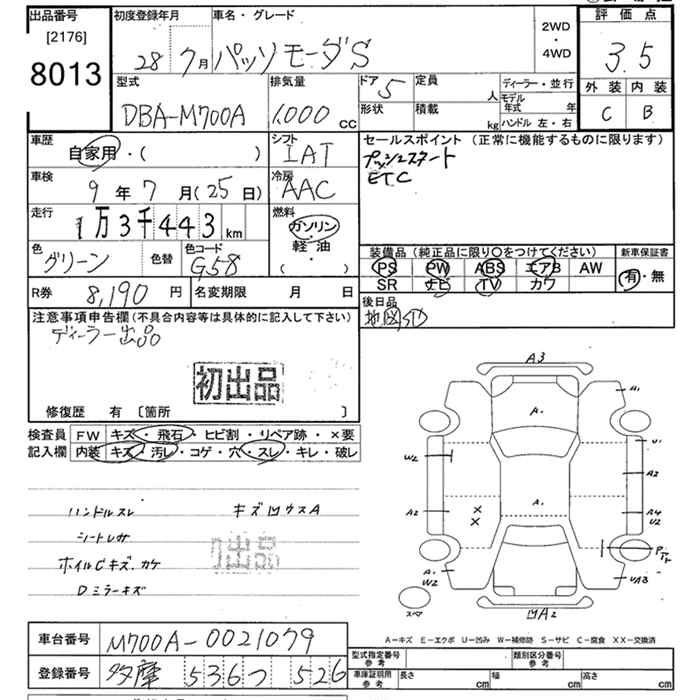 出品番号
[2176]
8013
初度登録年月 車名・グレード
28 7月 パッソ モーダS
2WD
・
4WD
評価点
3.5
外装 内装
C B
型式 排気量 ドア 定員 ディーラー・並行
DBA-M700A 1,000 cc 5 人 モデル年式 年
形状 積載 kg ハンドル 左・右
車歴 シフト セールスポイント (正常に機能するものに限ります)
自家用・( ) IAT プッシュスタート
ETC
車検 冷房
9年 7月 (25日) AAC
走行 燃料
1万3千443km ガソリン
・
軽油
( )
色 色替 色コード
グリーン G58
装備品 (純正品に限り○をつけてください) 新車保証書
PS PW ABS エアB AW 有・無
SR ナビ TV カワ
R券 8,190円 名変期限 月 日
後日品
注意事項申告欄 (不具合内容等は具体的に記入して下さい)
ディーラー出品
初出品
修復歴 有 [箇所 ]
検査員 FW キズ・飛石・ヒビ割・リペア跡・×要
記入欄 内装 キズ・汚レ・コゲ・穴・スレ・キレ・破レ
ハンドルスレ キズ凹ウスA
シートレサ
ホイルCキズ.カケ
Dミラーキズ
出品
A3
A.
A.
U.
W2
A2
A2
A4
U2
×
×
A.
A.
W2
UA3
スペア
凹A2
A-キズ E-エクボ U-凹み W-補修跡 S-サビ C-腐食 XX-交換済
車台番号 M700A-0021079
登録番号 多摩 536つ 526
型式指定番号 参考 類別区分番号 参考
車庫証明用 参考 長さ cm 幅 cm 高さ cm